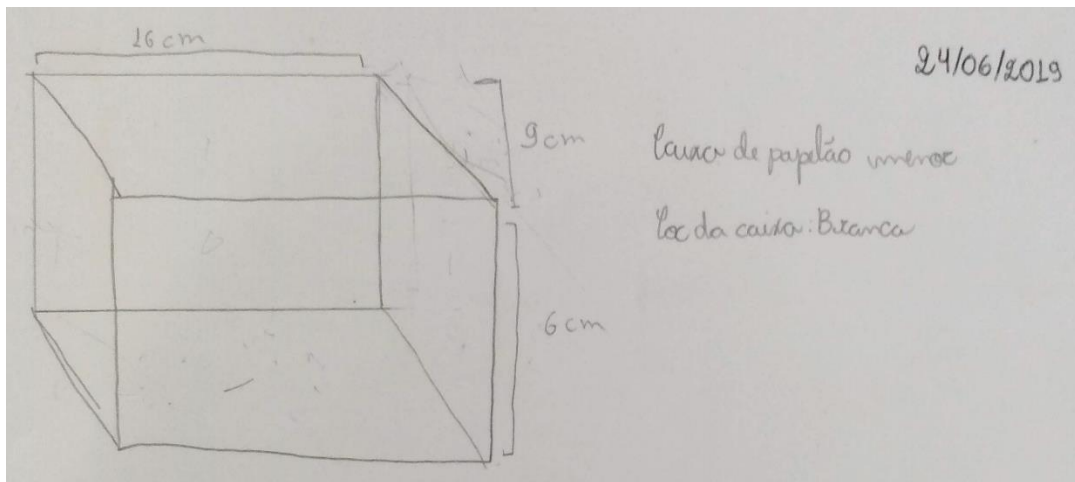 16 cm
24/06/2019
9 cm
Caixa de papelão menor
Cor da caixa: Branca
6 cm